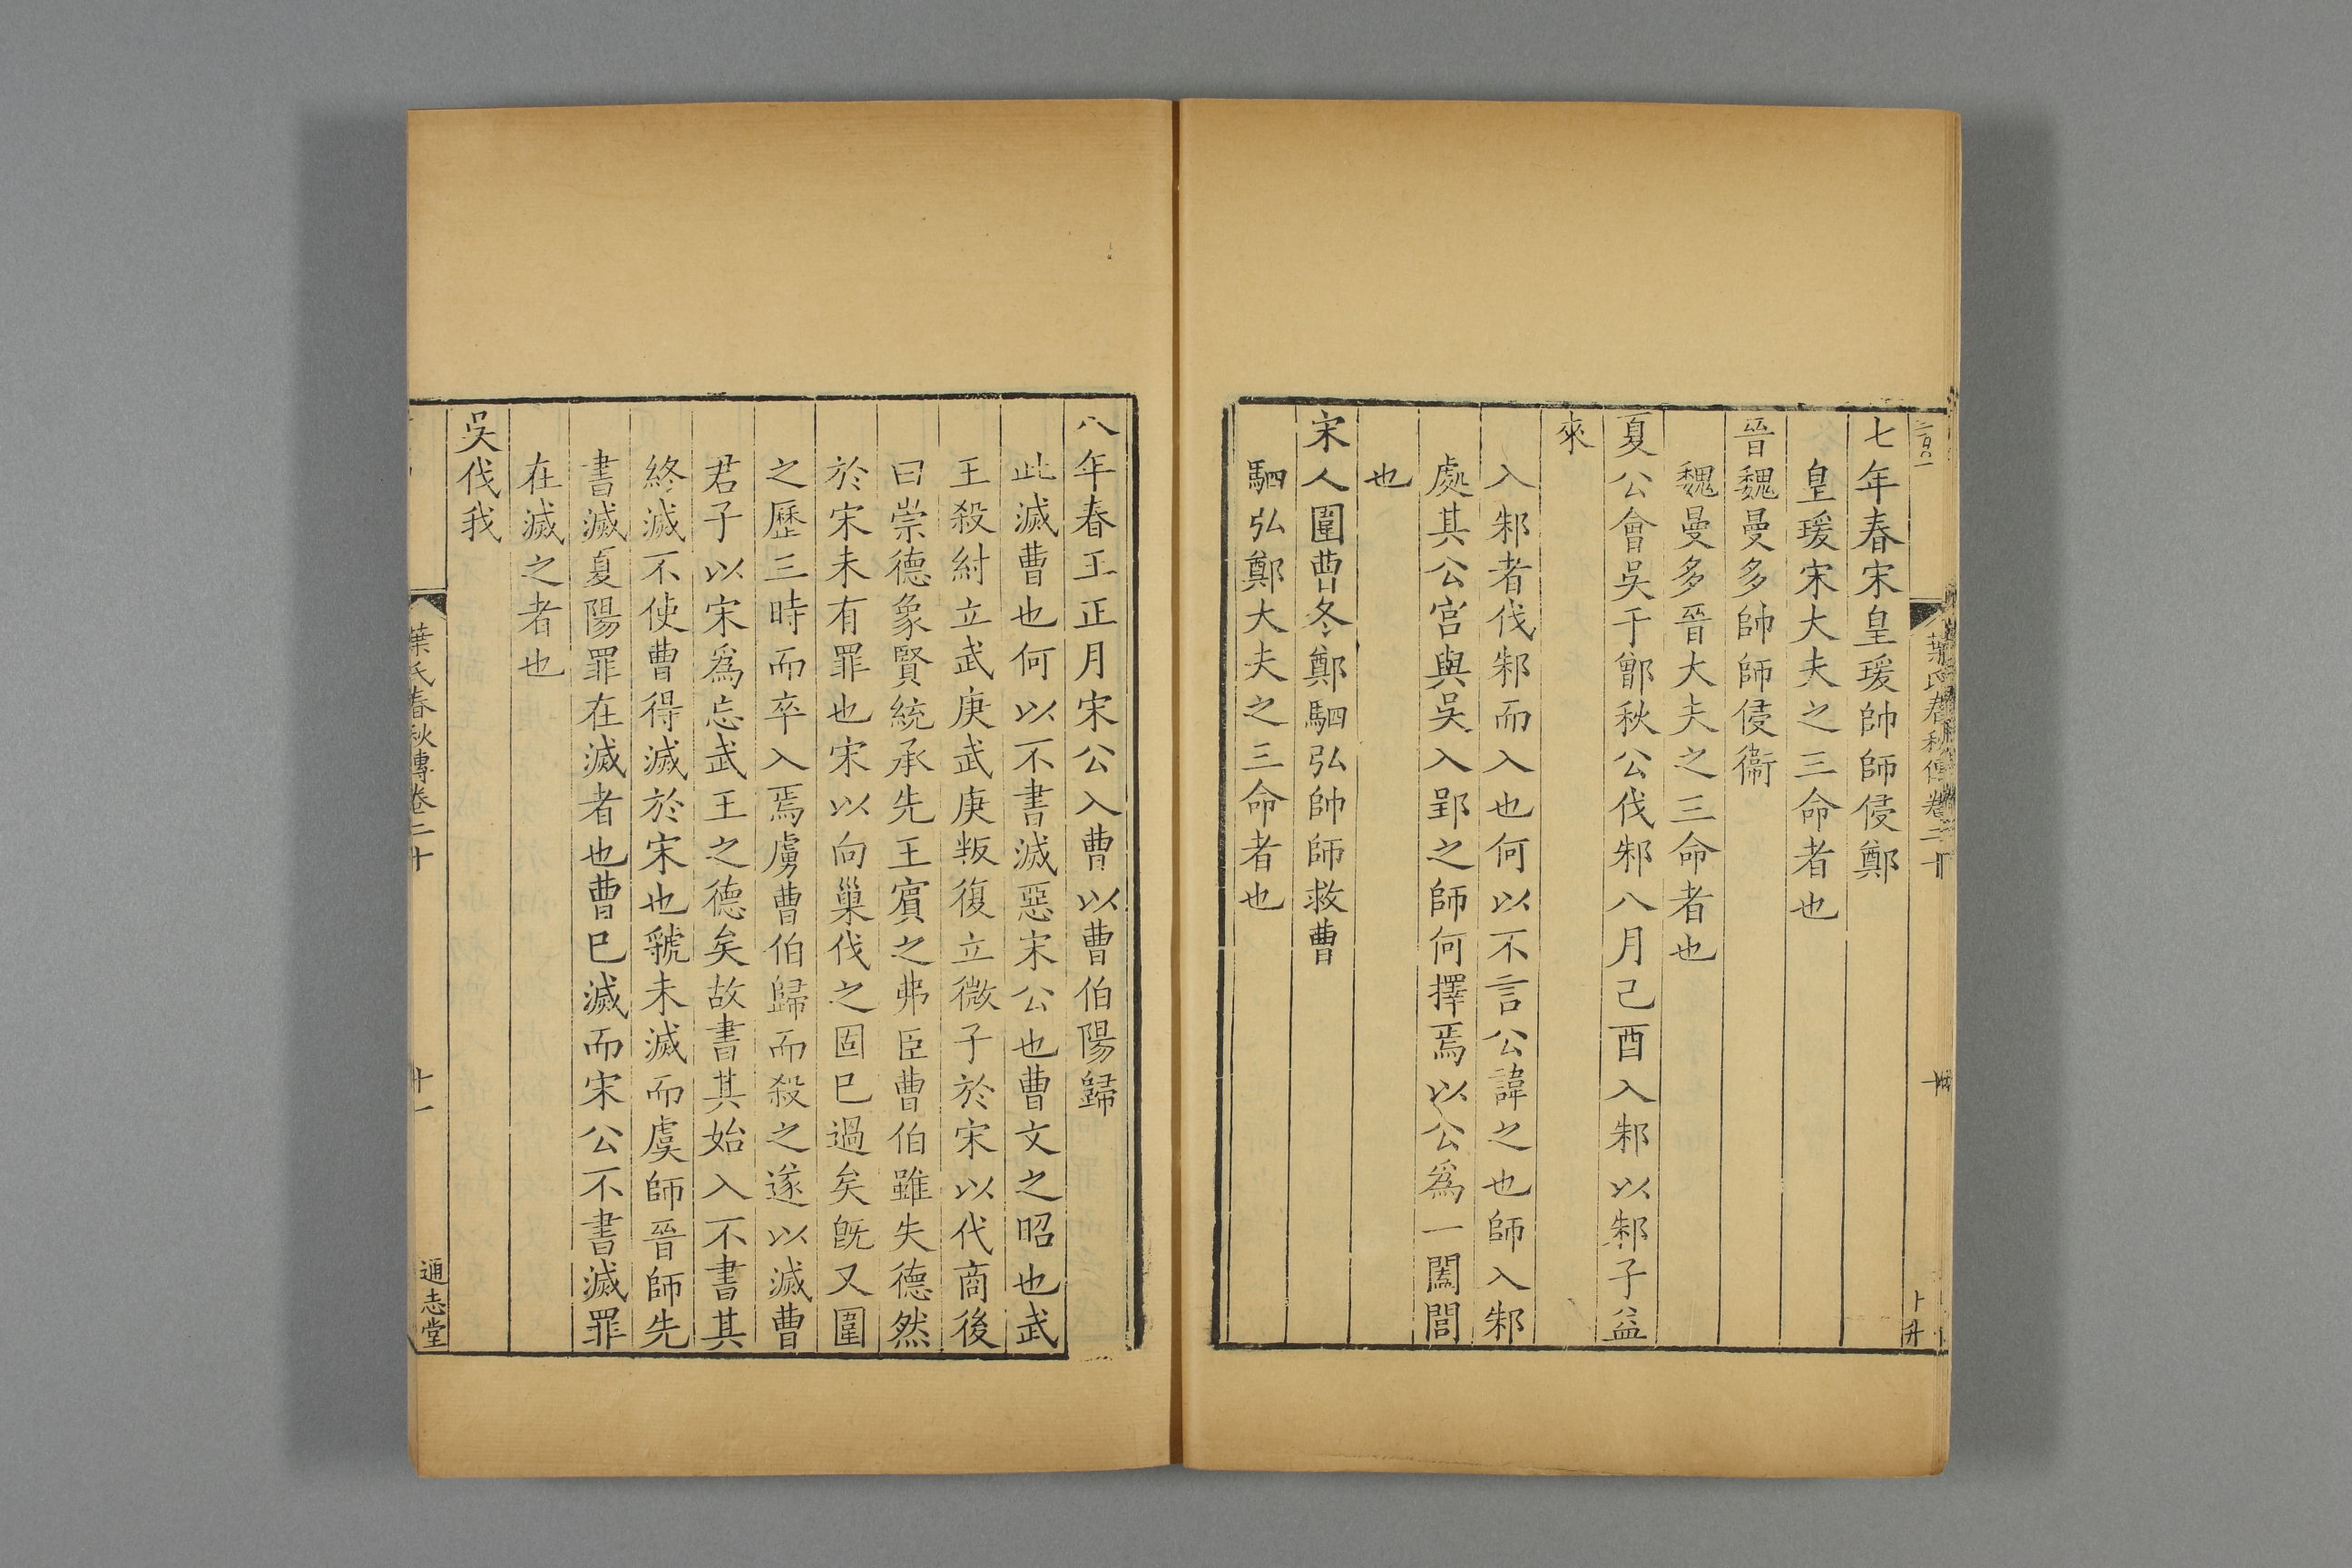 七年春宋皇瑗帥師侵鄭
皇瑗宋大夫之三命者也
晉魏曼多帥師侵衞
魏曼多晉大夫之三命者也
夏公會吳于鄫秋公伐邾八月己酉入邾以邾子益
來
入邾者伐邾而入也何以不言公諱之也師入邾
處其公宮與吳入郢之師何擇焉以公爲一闔閭
也
宋人圍曹冬鄭駟弘帥師救曹
駟弘鄭大夫之三命者也
八年春王正月宋公入曹以曹伯陽歸
此滅曹也何以不書滅惡宋公也曹文之昭也武
王殺紂立武庚武庚叛復立微子於宋以代商後
曰崇德象賢統承先王賓之弗臣曹伯雖失德然
於宋未有罪也宋以向巢伐之固已過矣旣又圍
之歷三時而卒入焉虜曹伯歸而殺之遂以滅曹
君子以宋爲忘武王之德矣故書其始入不書其
終滅不使曹得滅於宋也虢未滅而虞師晉師先
書滅夏陽罪在滅者也曹已滅而宋公不書滅罪
在滅之者也
吳伐我
葉氏春秋傳卷二十
十一
通志堂